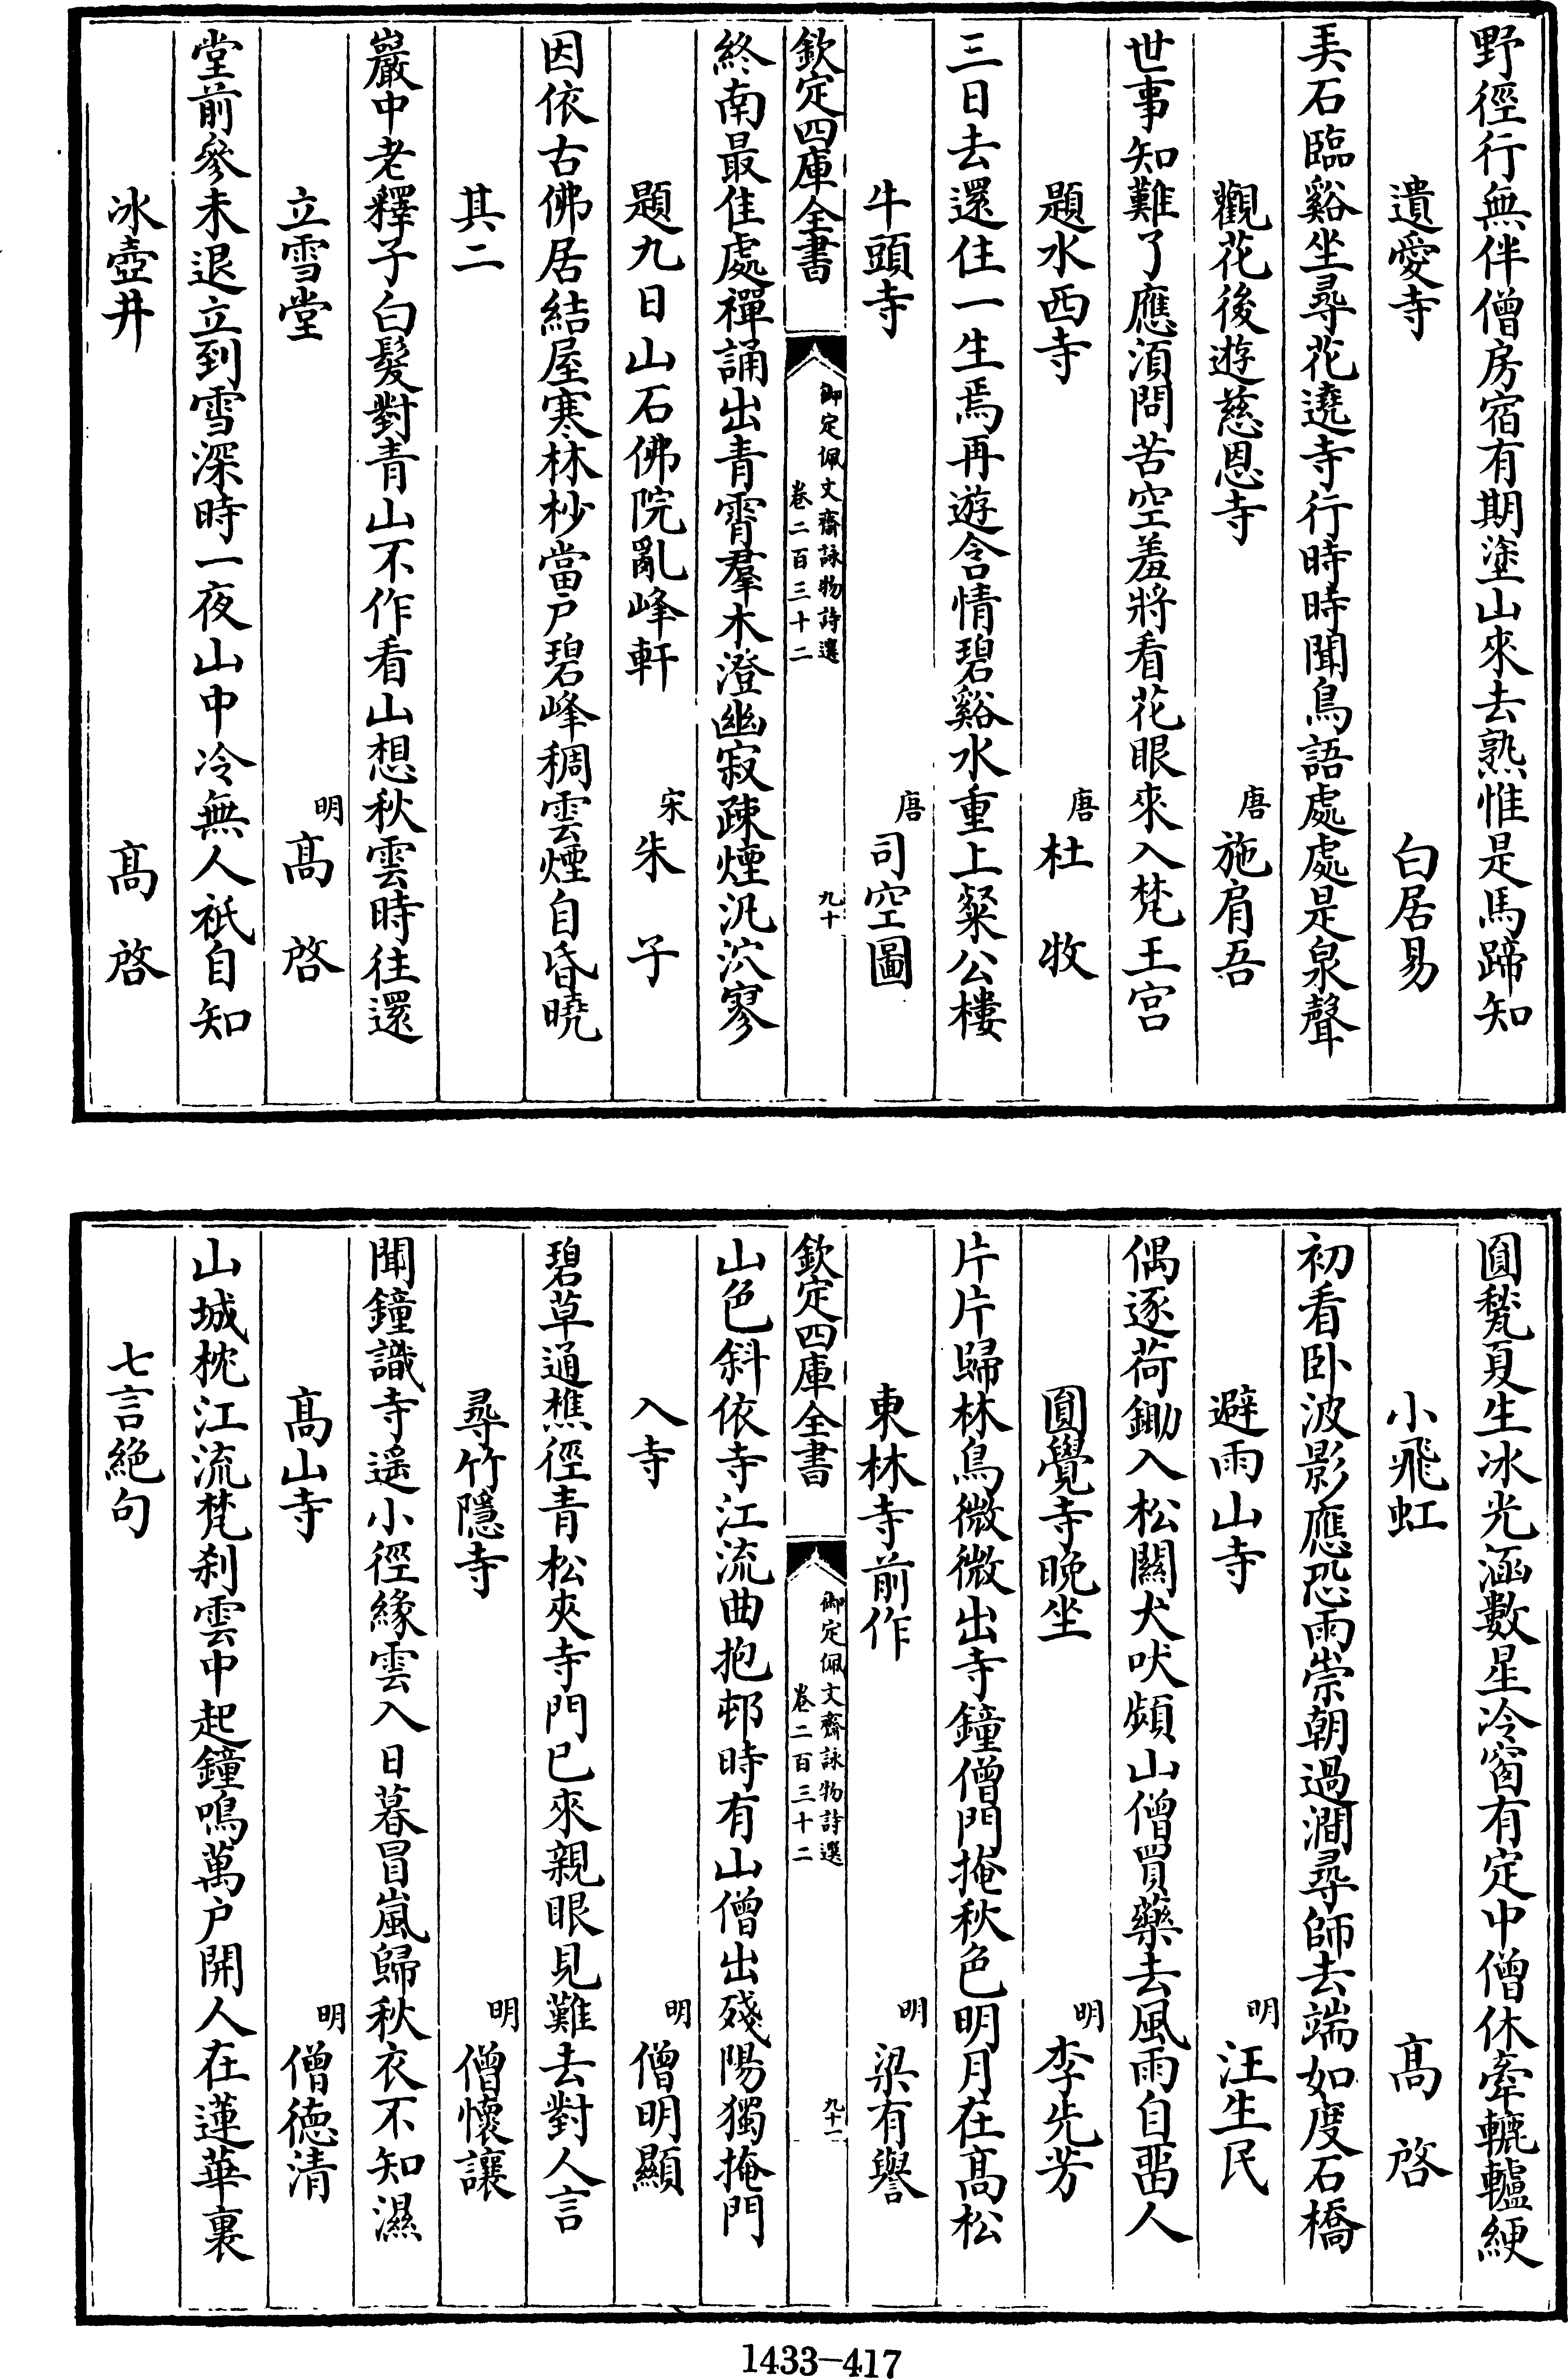 野徑行無伴僧房宿有期塗山來去熟惟是馬蹄知
遺愛寺　白居易
㺯石臨谿坐尋花遶寺行時時聞鳥語處處是泉聲
觀花後遊慈恩寺　唐　施肩吾
世事知難了應須問苦空羞將看花眼來入梵王宮
題水西寺　唐　杜牧
三日去還住一生焉再遊含情碧谿水重上粲公樓
牛頭寺　唐　司空圖
欽定四庫全書　御定佩文齋詠物詩選　卷二百三十二　九十
終南最佳處禪誦出青霄羣木澄幽寂疎煙汎泬寥
題九日山石佛院亂峰軒　宋　朱子
因依古佛居結屋寒林杪當戶碧峰稠雲煙自昏曉
其二
巖中老釋子白髮對青山不作看山想秋雲時往還
立雪堂　明　髙啓
堂前參未退立到雪深時一夜山中冷無人祇自知
冰壺井　髙啓
圓甃夏生冰光涵數星冷窗有定中僧休牽轆轤綆
小飛虹　髙啓
初看卧波影應恐雨崇朝過澗尋師去端如度石橋
避雨山寺　明　汪生民
偶逐荷鋤入松關犬吠頻山僧買藥去風雨自畱人
圓覺寺晩坐　明　李先芳
片片歸林鳥微微出寺鐘僧門掩秋色明月在髙松
東林寺前作　明　梁有譽
欽定四庫全書　御定佩文齋詠物詩選　卷二百三十二　九十一
山色斜依寺江流曲抱邨時有山僧出殘陽獨掩門
入寺　明　僧明顯
碧草通樵徑青松夾寺門已來親眼見難去對人言
尋竹隱寺　明　僧懷讓
聞鐘識寺遥小徑緣雲入日暮冒嵐歸秋衣不知濕
髙山寺　明　僧德清
山城枕江流梵刹雲中起鐘鳴萬戶開人在蓮華裏
七言絶句
1433-417